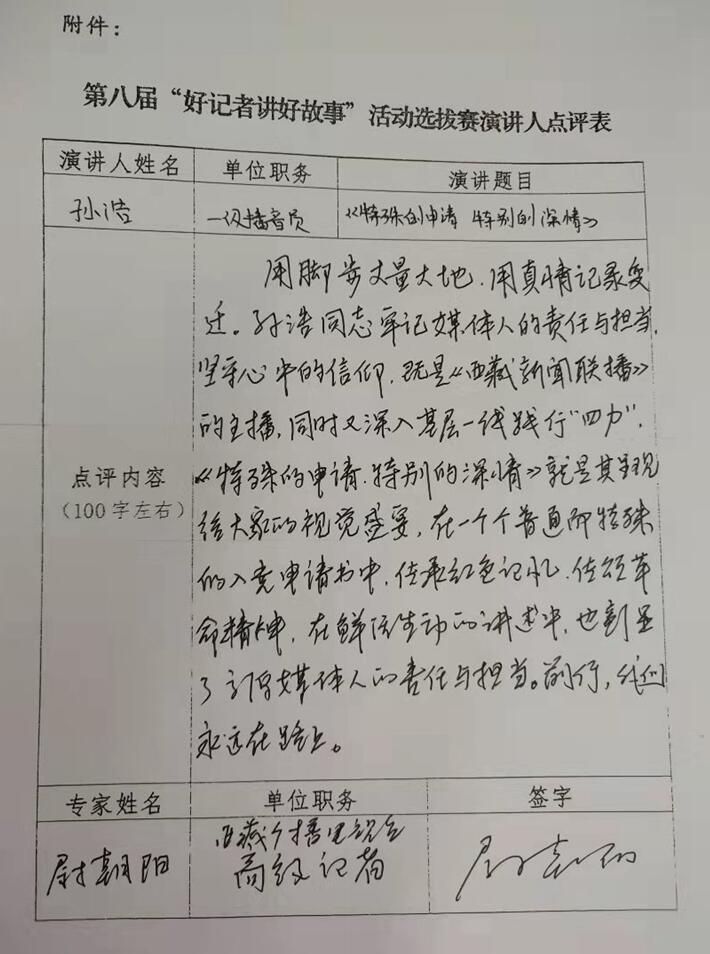 附件：
第八届“好记者讲好故事”活动选拔赛演讲人点评表
演讲人姓名 单位职务 演讲题目
孙浩 一级播音员 《特殊的申请 特别的深情》
用脚步丈量大地，用真情记录变
迁。孙浩同志牢记媒体人的责任与担当，
坚守心中的信仰，既是《西藏新闻联播》
的主播，同时又深入基层一线践行“四力”，
点评内容
（100字左右）
《特殊的申请，特别的深情》就是其呈现
给大家的视觉盛宴，在一个个普通而特殊
的入党申请书中，传承红色记忆，传颂革
命精神，在鲜活生动的讲述中，也彰显
了 媒体人的责任与担当。前行，我们
永远在路上。
专家姓名 单位职务 签字
尉朝阳 西藏广播电视台
高级记者